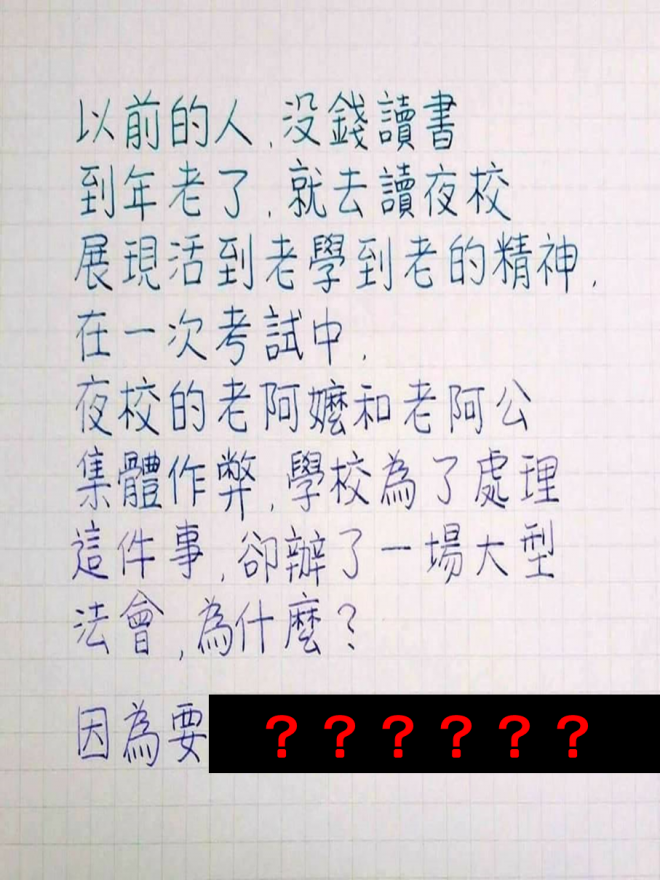 以前的人，没錢讀書
到年老了，就去讀夜校
展現活到老學到老的精神，
在一次考試中，
夜校的老阿嬤和老阿公
集體作弊，學校為了處理
這件事，卻辦了一場大型
法會，為什麼？
因為要？？？？？？